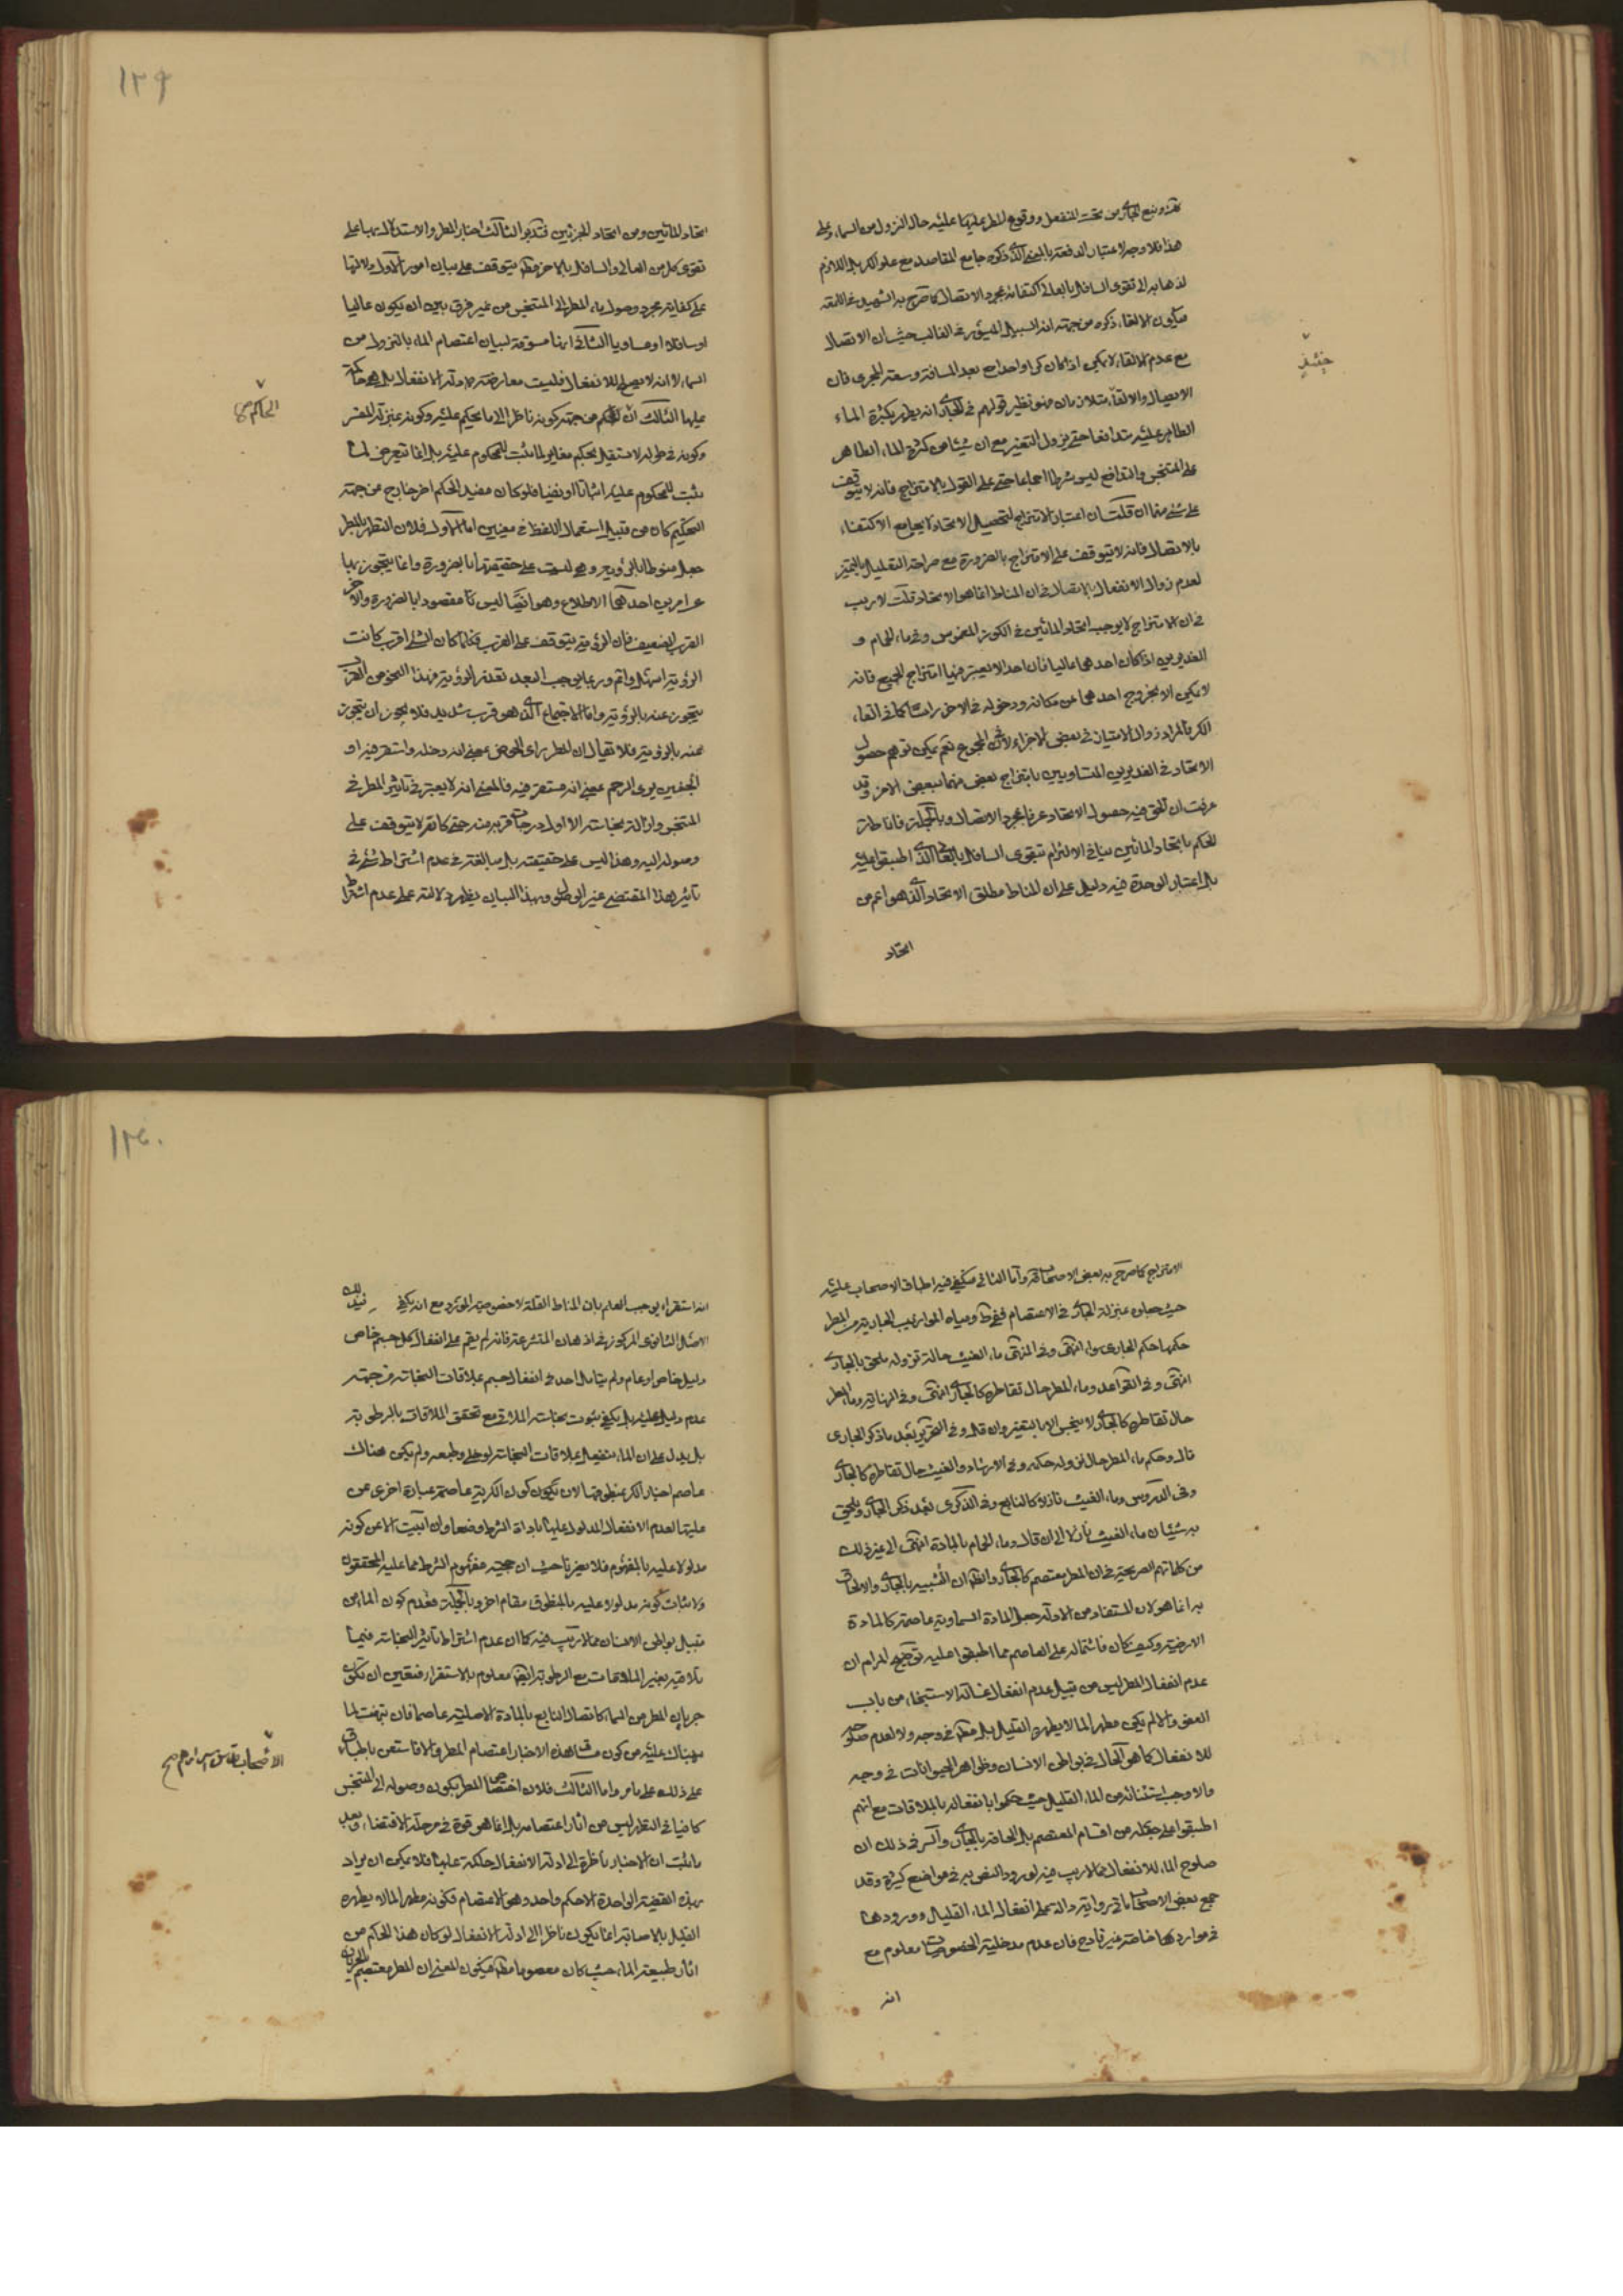 تحته ونبع الجاري من تحت المنفعل ووقوع المطر عليها عليه حال النزول من السماء وعلى
هذا فلا وجه لاعتبار الدفعة بالمعنى الذي ذكره جامع المقاصد مع علو الكر بل اللازم
لذهابه الى تقوى السافل بالعالي اكتفائه بمجرد الاتصال كما صرح به الشهيد في اللمعة
فيكون الالقاء ذكره من جهة انه السبيل الميسور في الغالب حيث ان الاتصال
حينئذ
مع عدم الالقاء لا يمكن اذا كان كرا واحدا مع بعد المسافة وسعة المجرى فان
الاتصال والالقاء متلازمان فهو نظير قولهم في الجاري انه يطهر بكثرة الماء
الطاهر عليه متدافعا حتى يزول التغير مع ان شيئا من كثرة الماء الطاهر
على المتنجس والتدافع ليس شرطا اجماعا حتى على القول بالامتزاج فانه لا يتوقف
على شيء منهما ان قلت ان اعتبار الامتزاج لتحصيل الاتحاد لا يجامع الاكتفاء
بالاتصال فانه لا يتوقف على الامتزاج بالضرورة مع صراحة التعليل بالتميز
لعدم زوال الانفعال بالاتصال في ان المناط انما هو الاتحاد قلت لا ريب
في ان الامتزاج لا يوجب اتحاد المائين في الكوز المغموس وفي ماء الحمام و
الغديرين اذا كان احدهما عاليا فان احدا لا يعتبر فيها امتزاج الجميع فانه
لا يمكن الا بخروج احدهما عن مكانه ودخوله في الاخر راسا كما في القاء
الكر فالمراد زوال الامتياز في بعض الاجزاء لا في المجموع نعم يمكن توهم حصول
الاتحاد في الغديرين المتساويين بامتزاج بعض منهما ببعض الاخر وقد
عرفت ان الحق فيه حصول الاتحاد عرفا بمجرد الاتصال وبالجملة فاناطة
الحكم باتحاد المائين ينافي الالتزام بتقوى السافل بالعالي الذي اطبقوا عليه
بل اعتبار الوحدة فيه دليل على ان المناط مطلق الاتحاد الذي هو اعم من
اتحاد
١٢٩
اتحاد المائين ومن اتحاد الجزئين فتدبر الثالث اخبار المطر والاستدلال بها على
تقوى كل من العالي والسافل بالاخر يتوقف على بيان امور الاول دلالتها
على كفاية مجرد وصول ماء المطر الى المتنجس من غير فرق بين ان يكون عاليا
او سافلا او مساويا الثاني انها مسوقة لبيان اعتصام الماء بالنزول من
السماء لا انه لا يصلح للانفعال فليست معارضة لادلة الانفعال بل هي حاكمة
الحاكم
عليها الثالث ان الحكم من جهة كونه ناظرا الى ما يحكم عليه وكونه بمنزلة المفسر
وكونه في طوله لا يستقل بحكم مغاير لما ثبت للمحكوم عليه بل انما يتعرض لما
يثبت للمحكوم عليه اثباتا او نفيا فلو كان مفيدا لحكم اخر خارج من جهة
التحكيم كان من قبيل استعمال اللفظ في معنيين اما الاول فلان التطهر بالمطر
جعل منوطا بالرؤية وهي ليست على حقيقتها بالضرورة وانما يتجوز بها
عن امرين احدهما الاطلاع وهو ايضا ليس مقصودا بالضرورة والاخر
القرب الضعيف فان الرؤية يتوقف على القرب فكلما كان الشيء اقرب كانت
الرؤية اسهل واتم وربما يوجب البعد تعذر الرؤية فهذا النحو من القرب
يتجوز عنه بالرؤية واما الاجتماع الذي هو قرب شديد فلا يجوز ان يتجوز
عنه بالرؤية فلا تقال ان المطر راى الحوض بمعنى انه دخله واستقر فيه او
الجنين يرى الرحم بمعنى انه مستقر فيه فالمعنى انه لا يعتبر في تاثير المطر في
المتنجس وازالة نجاسته الا اول درجات قربه منه حتى كانه لا يتوقف على
وصوله اليه وهذا ليس على حقيقته بل مبالغة في عدم اشتراط شيء في
تاثير هذا المقتضى غير الوصول وبهذا البيان يظهر دلالته على عدم اشتراط
الامتزاج كما صرح به بعض الاصحاب واما الثاني فيكفي فيه اطباق الاصحاب عليه
حيث جعلوه بمنزلة الجاري في الاعتصام ففي ط ومياه الموازيب الجارية من المطر
حكمها حكم الجاري سواء انتهى وفي المنتهى ماء الغيث حالة نزوله ملحق بالجاري
انتهى وفي القواعد وماء المطر حال تقاطره كالجاري انتهى وفي النهاية وماء المطر
حال تقاطره كالجاري لا ينجس الا بالتغير وان قل وفي التحرير بعد ما ذكر الجاري
قال وحكم ماء المطر حال نزوله حكمه وفي الارشاد والغيث حال تقاطره كالجاري
وفي الدروس وماء الغيث نازلا كالنابع وفي الذكرى بعد ذكر الجاري ويلحق
به شيئان ماء الغيث نازلا الى ان قال وماء الحمام بالمادة انتهى الى غير ذلك
من كلماتهم الصريحة في ان المطر معتصم كالجاري والظاهر ان التشبيه بالجاري والالحاق
به انما هو لان المستفاد من الادلة جعل المادة السماوية عاصمة كالمادة
الارضية وكيف كان فاشتماله على العاصم مما اطبقوا عليه توضيح المرام ان
عدم انفعال المطر ليس من قبيل عدم انفعال غسالة الاستنجاء من باب
العفو والا لم يكن مطهرا لما لا يطهره القليل بل في وجه ولا لعدم صلوحه
للانفعال كما هو الحال في بواطن الانسان وظواهر الحيوانات في وجه
والا وجب استثنائه من الماء القليل حيث حكموا بانفعاله بالملاقات مع انهم
اطبقوا على جعله من اقسام المعتصم بل الحاقه بالجاري والسر في ذلك ان
صلوح الماء للانفعال مما لا ريب فيه لورود النص به في مواضع كثيرة وقد
جمع بعض الاصحاب رواية دالة على انفعال الماء القليل وورودها
في موارد خاصة غير قادح فان عدم مدخلية الخصوصيات معلوم مع
انه
١٣٠
انه استقراء يوجب العلم بان المناط القلة لا خصوص المورد مع انه يكفي في ذلك
الاصل الثانوي المركوز في اذهان المتشرعة فانه لم يقم على انفعال كل جسم خاص
دليل خاص او عام ولم يتامل احد في انفعال جسم بملاقات النجاسة من جهة
عدم دليل عليه بل يكفي ثبوت نجاسة الملاقي مع تحقق الملاقات بالرطوبة
بل يدل على ان الماء ينفعل بملاقات النجاسة لو خلي وطبعه ولم يكن هناك
عاصم اخبار الكر بمنطوقها لان كون الكرية عاصمة عبارة اخرى عن
عليتها لعدم الانفعال المدلول عليها باداة الشرط وضعا وان ابيت الا عن كونه
مدلولا عليه بالمفهوم فلا يضرنا حيث ان حجية مفهوم الشرط مما عليه المحققون
ولاثبات كونه مدلولا عليه بالمنطوق مقام اخر وبالجملة فعدم كون الماء من
قبيل بواطن الانسان مما لا ريب فيه كما ان عدم اشتراط تاثير النجاسة فيما
تلاقيه بغير الملاقات مع الرطوبة ايضا معلوم بالاستقراء فتعين ان يكون
جريان المطر من السماء كاتصال النابع بالمادة الاصلية عاصما فان تبينت لما
نبهناك عليه من كون مفاد هذه الاخبار اعتصام المطر والا فاستعن باطباق
الاصحاب
على ذلك على ما مر واما الثالث فلان اختصاص المطر بكون وصوله الى المتنجس
كافيا في التطهر ليس من اثار اعتصامه بل انما هو قوة في مرحلة الاقتضاء وبعد
ما ثبت ان الاخبار ناظرة الى ادلة الانفعال حاكمة عليها فلا يمكن ان يراد
بهذه القضية الواحدة الا حكم واحد وهو الاعتصام فكونه مطهرا لما لا يطهره
القليل بالاصابة انما يكون ناظرا الى ادلة الانفعال لو كان هذا الحكم من
اثار طبيعة الماء حيث كان معصوما فيكون المعنى ان المطر معتصم بالجريان